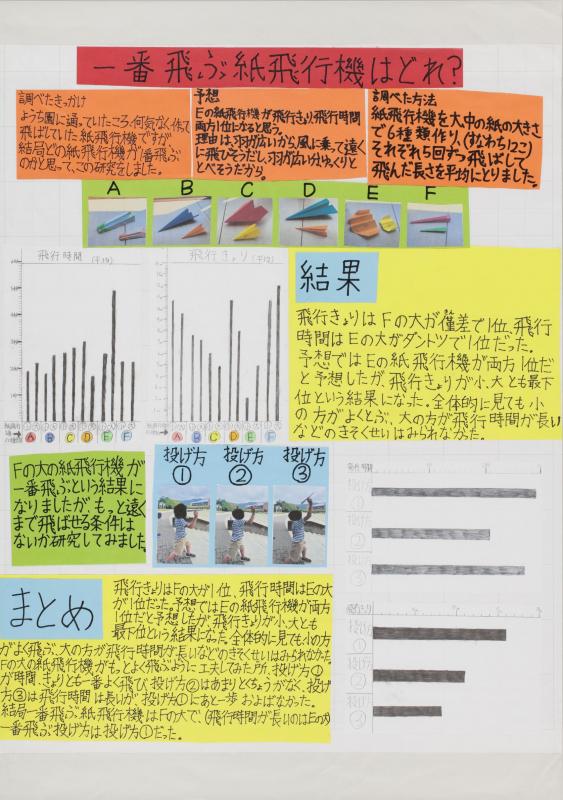 一番飛ぶ紙飛行機はどれ?
調べたきっかけ
ようち園に通っていたころ、何気なく作って
飛ばしていた紙飛行機ですが
結局どの紙飛行機が1番飛ぶ
のかと思って、この研究をしました。
予想
Eの紙飛行機が飛行きょり、飛行時間
両方1位になると思う。
理由は、羽が広いから、風に乗って遠く
に飛びそうだし、羽が広い分ゆっくりと
とべそうだから。
調べた方法
紙飛行機を大中の紙の大きさ
で6種類作り、(すなわち12こ)
それぞれ5回ずつ飛ばして
飛んだ長さを平均にとりました。
A B C D E F
飛行時間 (平均)
飛行きょり (平均)
A B C D E F
A B C D E F
結果
飛行きょりはFの大が僅差で1位、飛行
時間はEの大がダントツで1位だった。
予想ではEの紙飛行機が両方1位だ
と予想したが、飛行きょりが小、大とも最下
位という結果になった。全体的に見ても小
の方がよくとぶ、大の方が飛行時間が長い
などのきそくせいはみられなかった。
Fの大の紙飛行機が
一番飛ぶという結果に
なりましたが、もっと遠く
まで飛ばせる条件は
ないか研究してみました。
投げ方 投げ方 投げ方
① ② ③
飛行時間
投げ方
①
投げ方
②
投げ方
③
飛行きょり
投げ方
①
投げ方
②
投げ方
③
まとめ
飛行きょりはFの大が1位、飛行時間はEの大
が1位だった。予想ではEの紙飛行機が両方
1位だと予想したが、飛行きょりが小、大とも
最下位という結果になった。全体的に見ても小の方
がよく飛ぶ、大の方が飛行時間が長いなどのきそくせいはみられなかった。
Fの大の紙飛行機がもっとよく飛ぶように工夫してみた所、投げ方①
が時間、きょりとも一番よく飛び、投げ方②はあまりとくちょうがなく、投げ
方③は飛行時間は長いが、投げ方①にあと一歩およばなかった。
結局一番飛ぶ紙飛行はFの大で、(飛行時間が長いのはEの大)
一番飛ぶ投げ方は投げ方①だった。